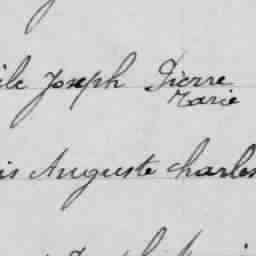 ile Joseph Pierre
Marie
is Auguste Charles